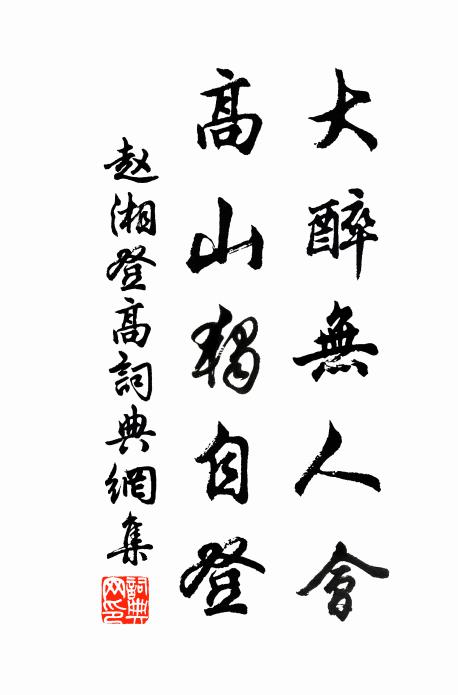 大醉無人會
高山獨自登
赵湘登高詞典網集
詞典